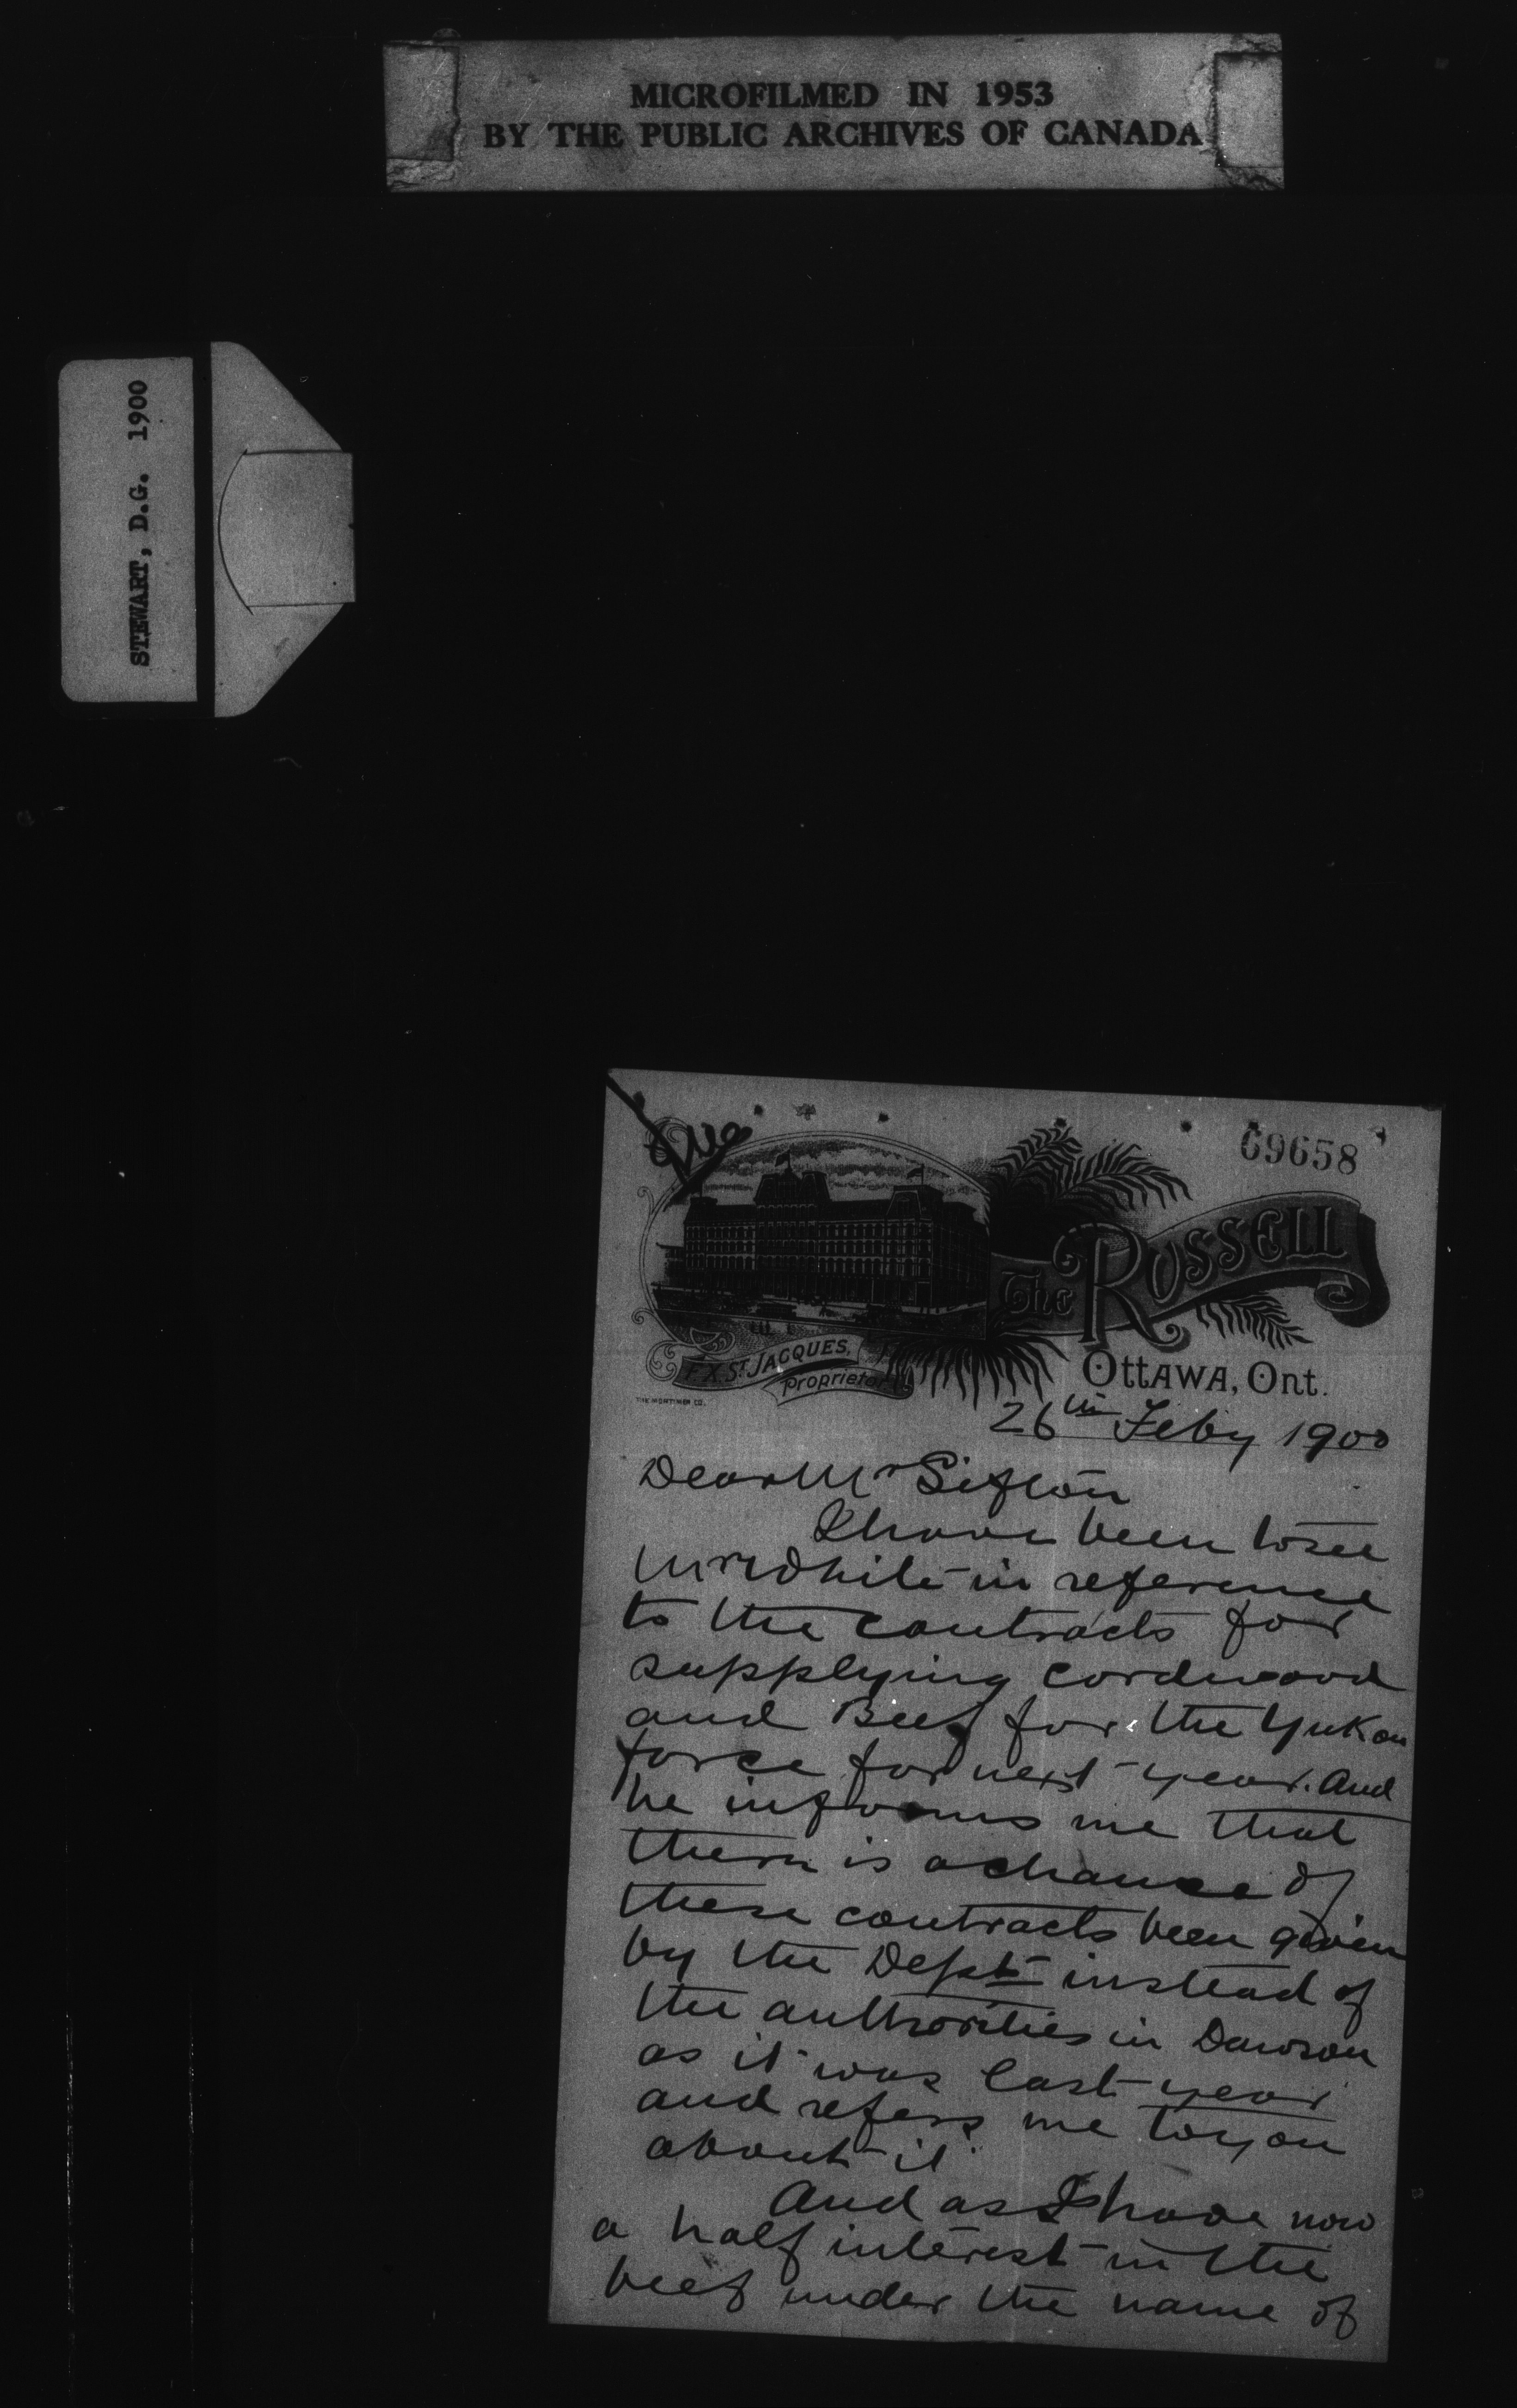 MICROFILMED IN 1953
BY THE PUBLIC ARCHIVES OF CANADA
STEWART, D.G. 1900
69658
The RUSSELL
F. X. ST. JACQUES,
Proprietor
OTTAWA, Ont.
THE MORTIMER CO.
26th Feby 1900
Dear Mr Sifton
I have been to see
Mr White in reference
to the contracts for
supplying cordwood
and Beef for the Yukon
force for next year. And
he informs me that
there is a chance of
these contracts been given
by the Dept instead of
the authorities in Dawson
as it was last year
and refers me to you
about it.
And as I have now
a half interest in the
beef under the name of